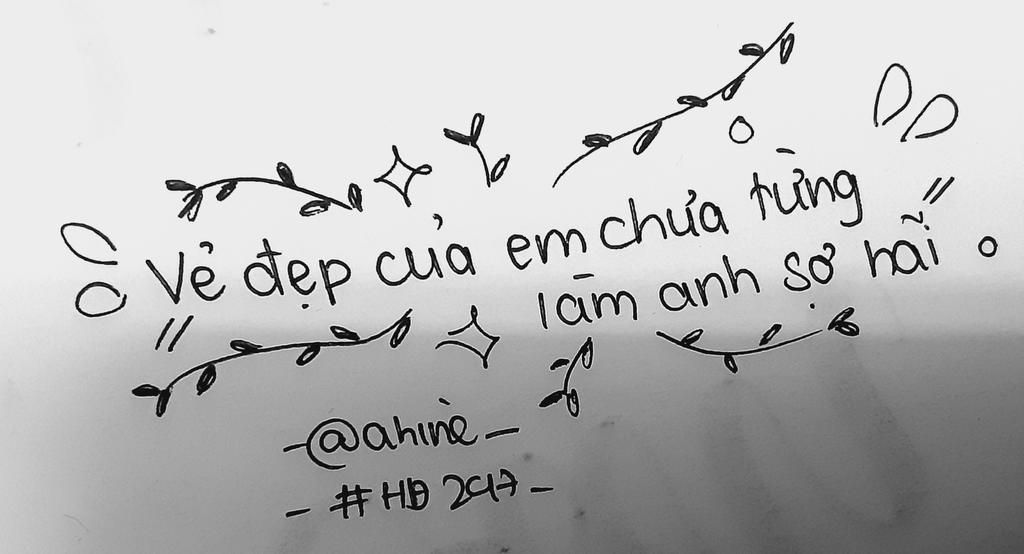 "Vẻ đẹp của em chưa từng
làm anh sợ hãi"
-@ahinè-
- #HĐ 247-